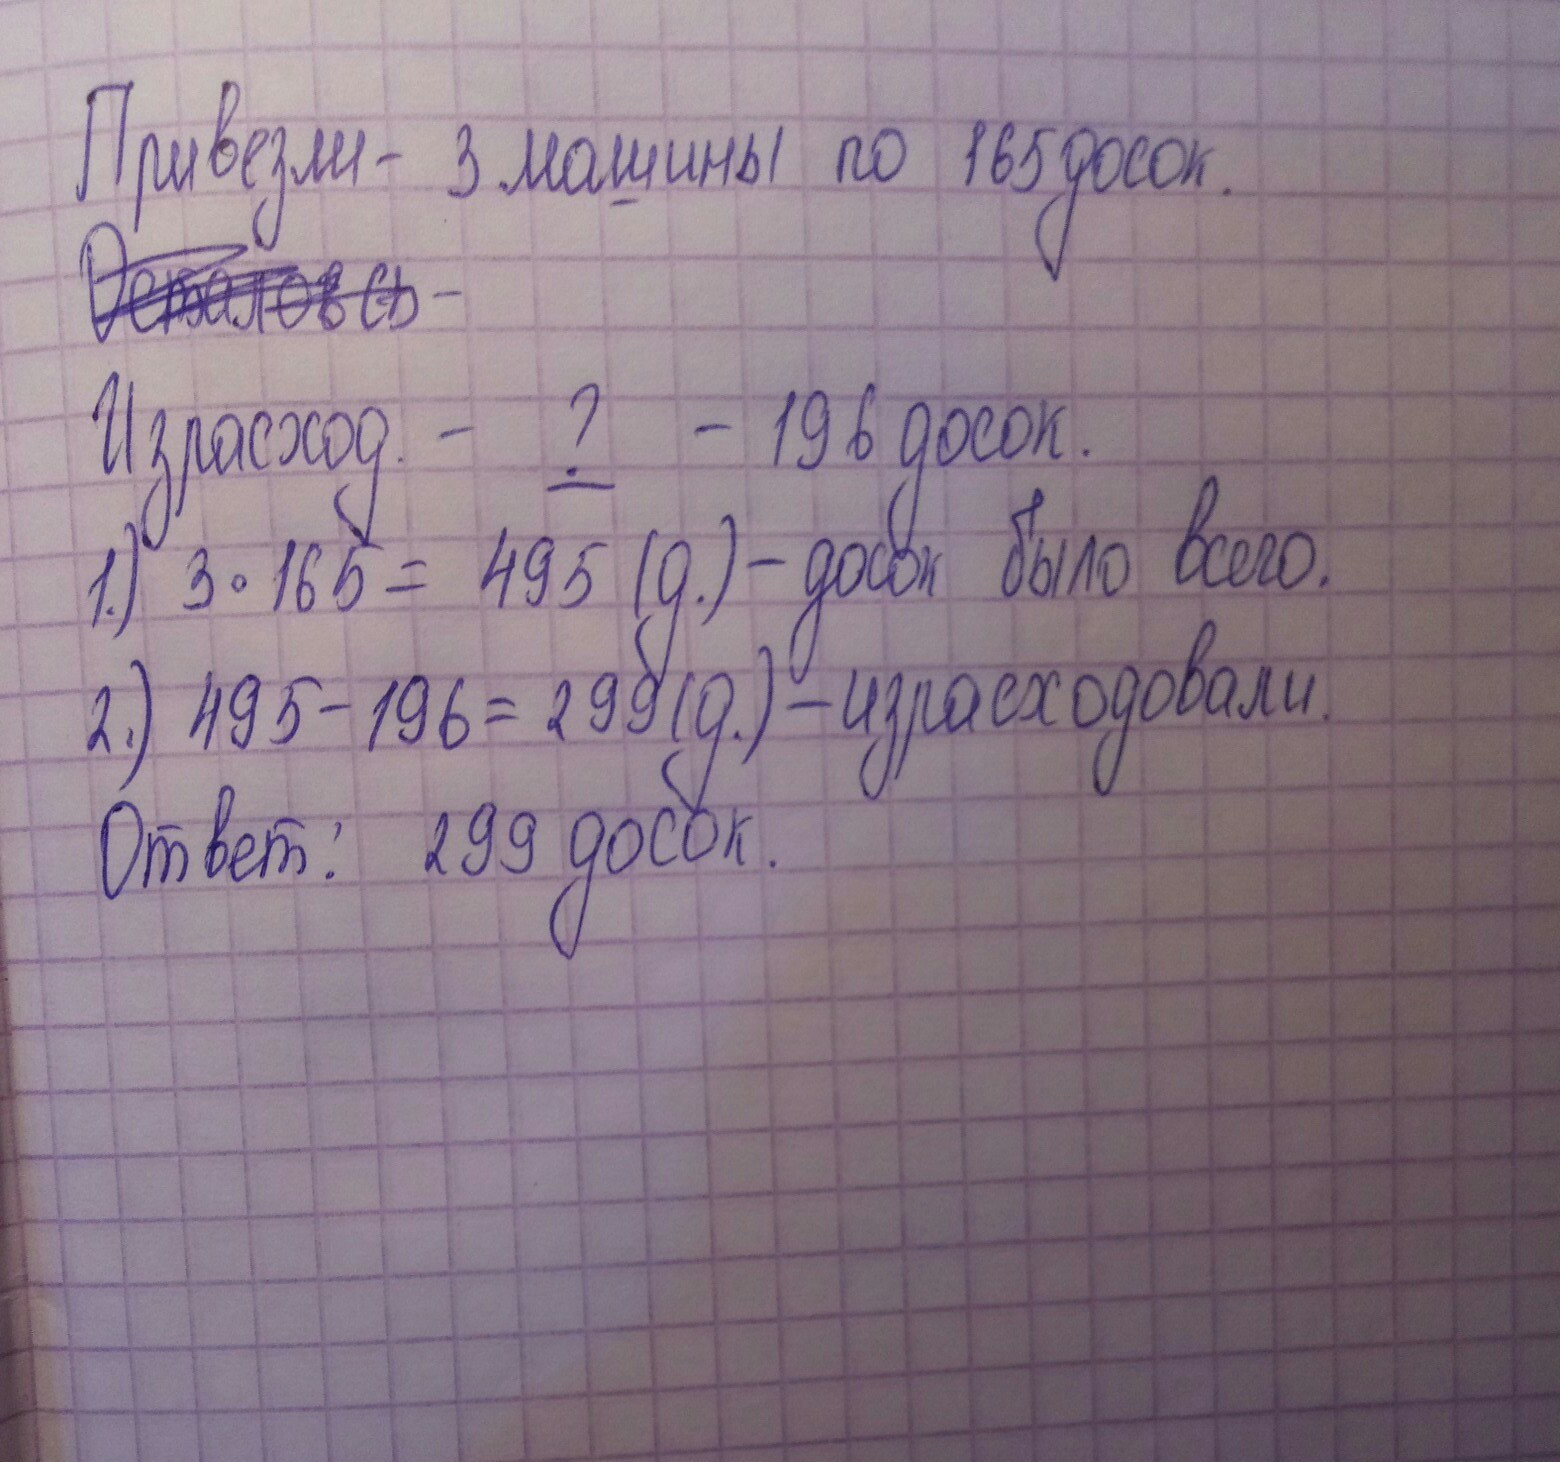 Привезли - 3 машины по 165 досок.
Осталось -
Израсход. - ? - 196 досок.
1.) 3·165 = 495 (д.) - досок было всего.
2.) 495 - 196 = 299 (д.) - израсходовали.
Ответ: 299 досок.